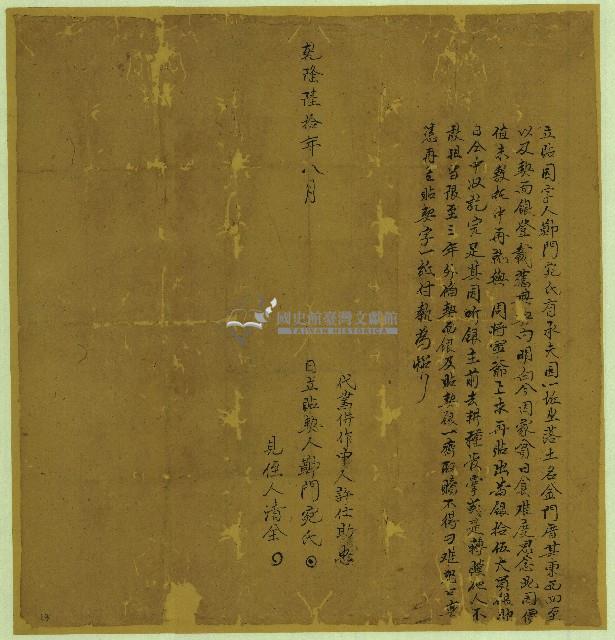 立貼田字人鄭門宛氏有承夫田一坵坐落土名金門厝其東西四至
以及契面銀登載舊契內明白今因家貧日食難度思念此田價
值未敷托中再就與 周將 爺上來再貼出番銀拾伍大員銀即
日仝中收訖完足其田聽銀主前去耕種掌管或是轉贌他人不
敢阻当限至三年外備契面銀及貼契銀一齊取贖不得刁难恐口無
憑再立貼契字一紙付執為炤
乾隆陸拾年八月
代書併作中人許仕助
日立貼契人鄭門宛氏
見住人清全
國史館臺灣文獻館
TAIWAN HISTORICA